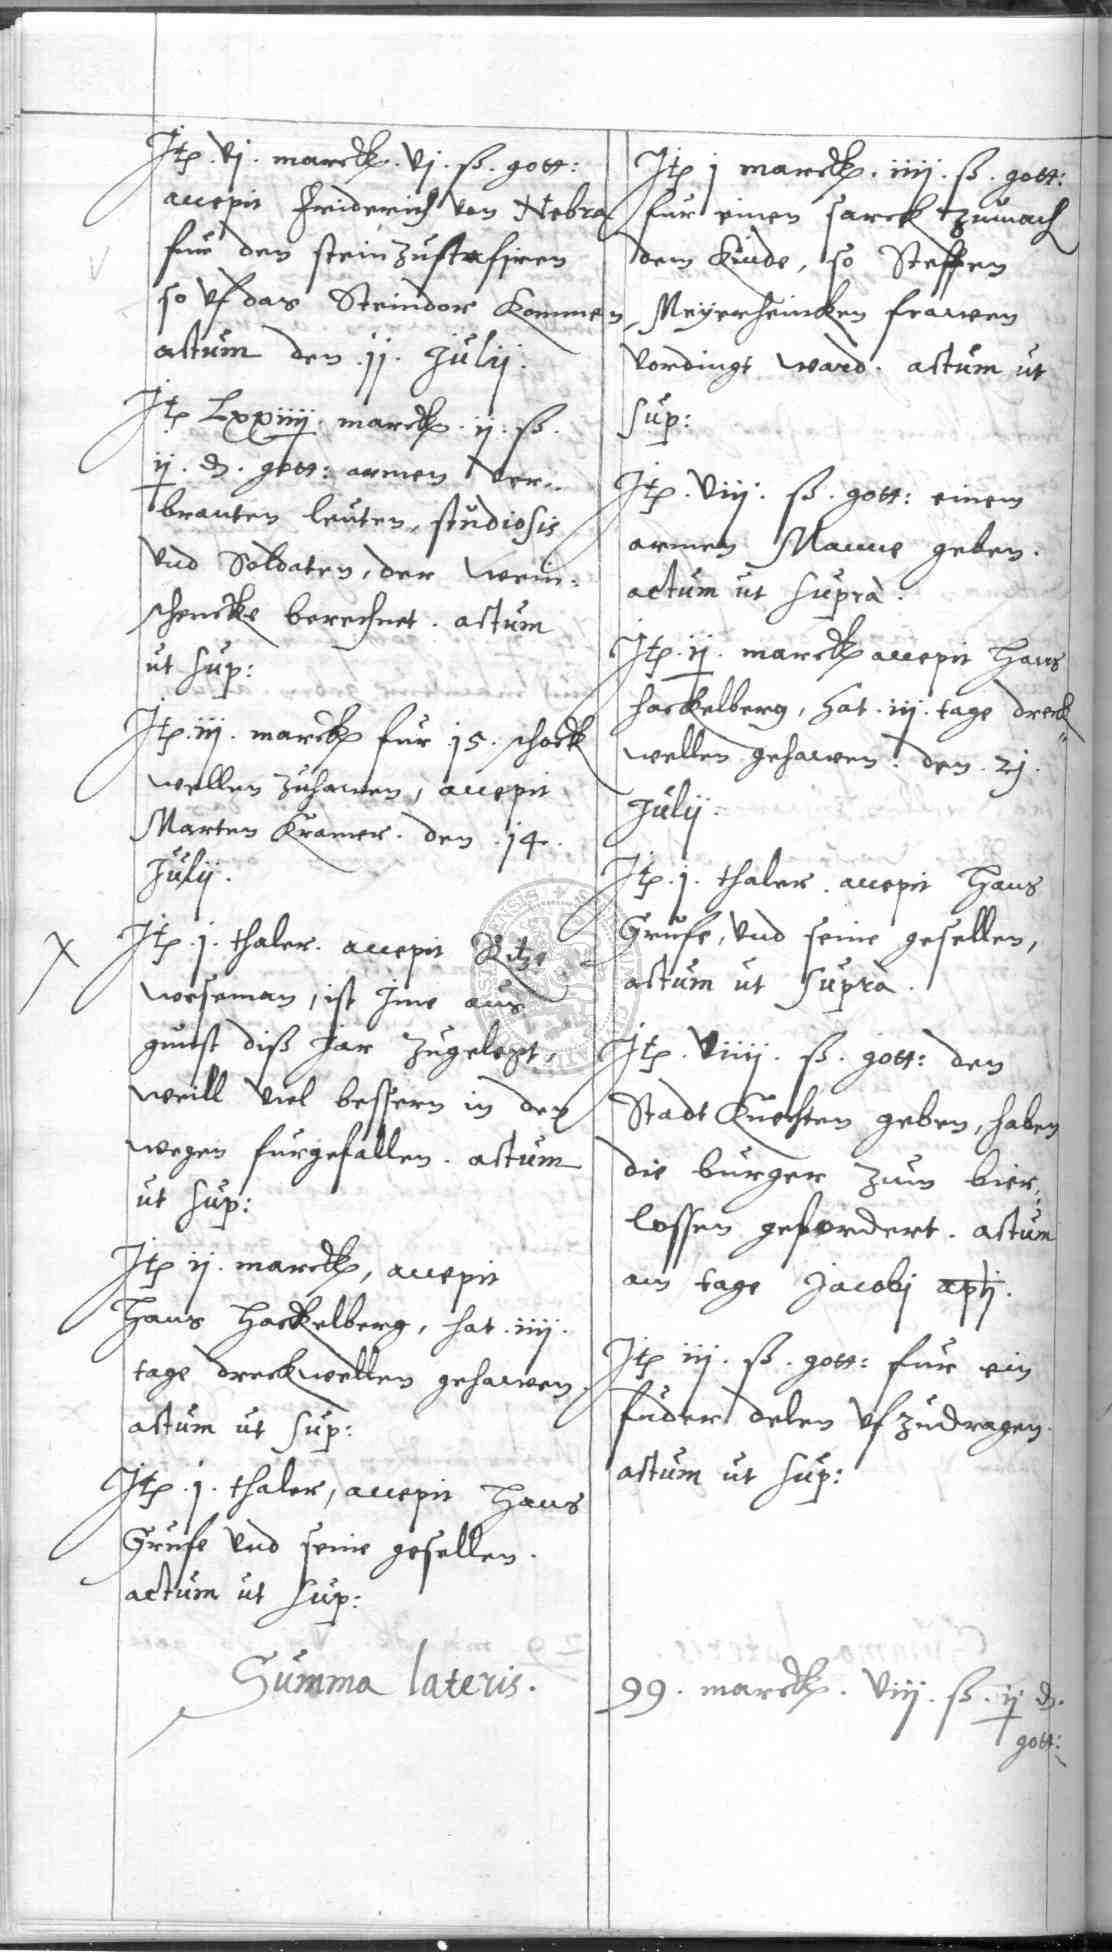 Itp. vj. marck. vj. ß. gott:
accepit Friderich von Nebra
fur den stein zustafiren
so vf das Steindor kommen,
actum den .11. Julij.
Itp Lxxiiij. marck. ij. ß.
ij. d. gott: armen ver-
branten leuten, studiosis
vnd Soldaten, der Wein-
schencke berechnet. actum
ut sup:
Itp. iij. marck fur .15. schock
wellen zuhawen, accepit
Marten Kramer. den .14.
Julij.
Itp. j. thaler. accepit Ritze
Weseman, ist Ime aus
gunst diß Jar zugelegt,
weill viel bessern in den
wegen furgefallen. actum
ut sup:
Itp ij. marck, accepit
Hans Hackelberg, hat .iiij.
tage dreckwellen gehawen.
actum ut sup:
Itp. j. thaler, accepit Hans
Grufe vnd seine gesellen.
actum ut sup:
Summa lateris.
Itp j marck. iiij. ß. gott:
fur einen sarck zumach
dem Kinde, so Steffen
Meyerheincken frawen
vordingt ward. actum ut
sup:
Itp. viij. ß. gott: einem
armen Manne geben.
actum ut supra.
Itp. ij. marck accepit Hans
Hackelberg, hat .iij. tage dreck
wellen gehawen. den .21.
Julij.
Itp. j. thaler. accepit Hans
Grufe, vnd seine gesellen,
actum ut supra.
Itp. viiij. ß. gott: den
Stadt Knechten geben, haben
die burger zum bier-
lossen gefordert. actum
am tage Jacobj aptj.
Itp iij. ß. gott: fur ein
fuder delen vf zudragen.
actum ut sup:
99. marck. viij. ß. ij d.
gott: